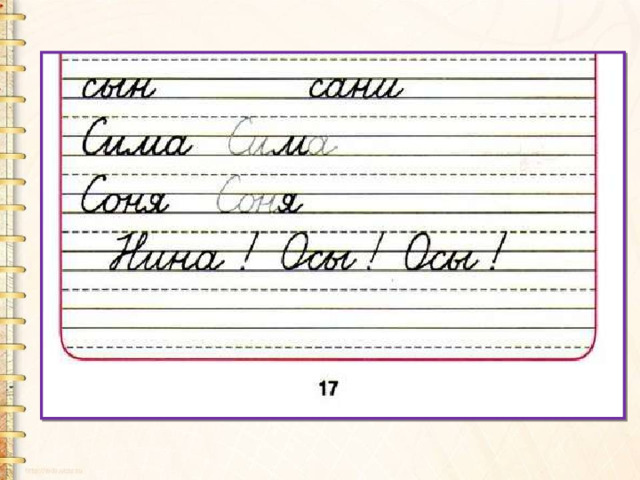 сын сани
Сима Сима
Соня Соня
Нина! Осы! Осы!
17